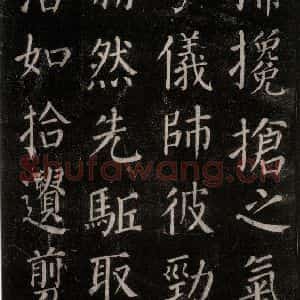 掃攙搶之氣
儀師彼勁
然先駈取
如拾遺剪
Shufawang.CN